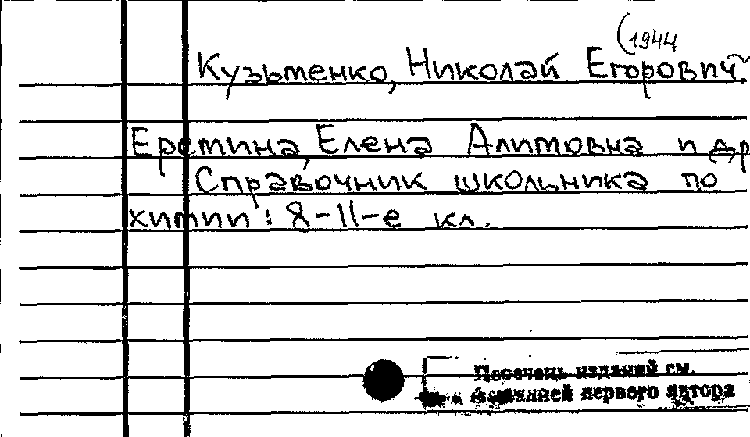 (1944
Кузьменко, Николай Егорович.
Еремина, Елена Алимовна и др
Справочник школьника по
химии: 8-11-е кл.
Перечень изданий см.
фамилией первого автора